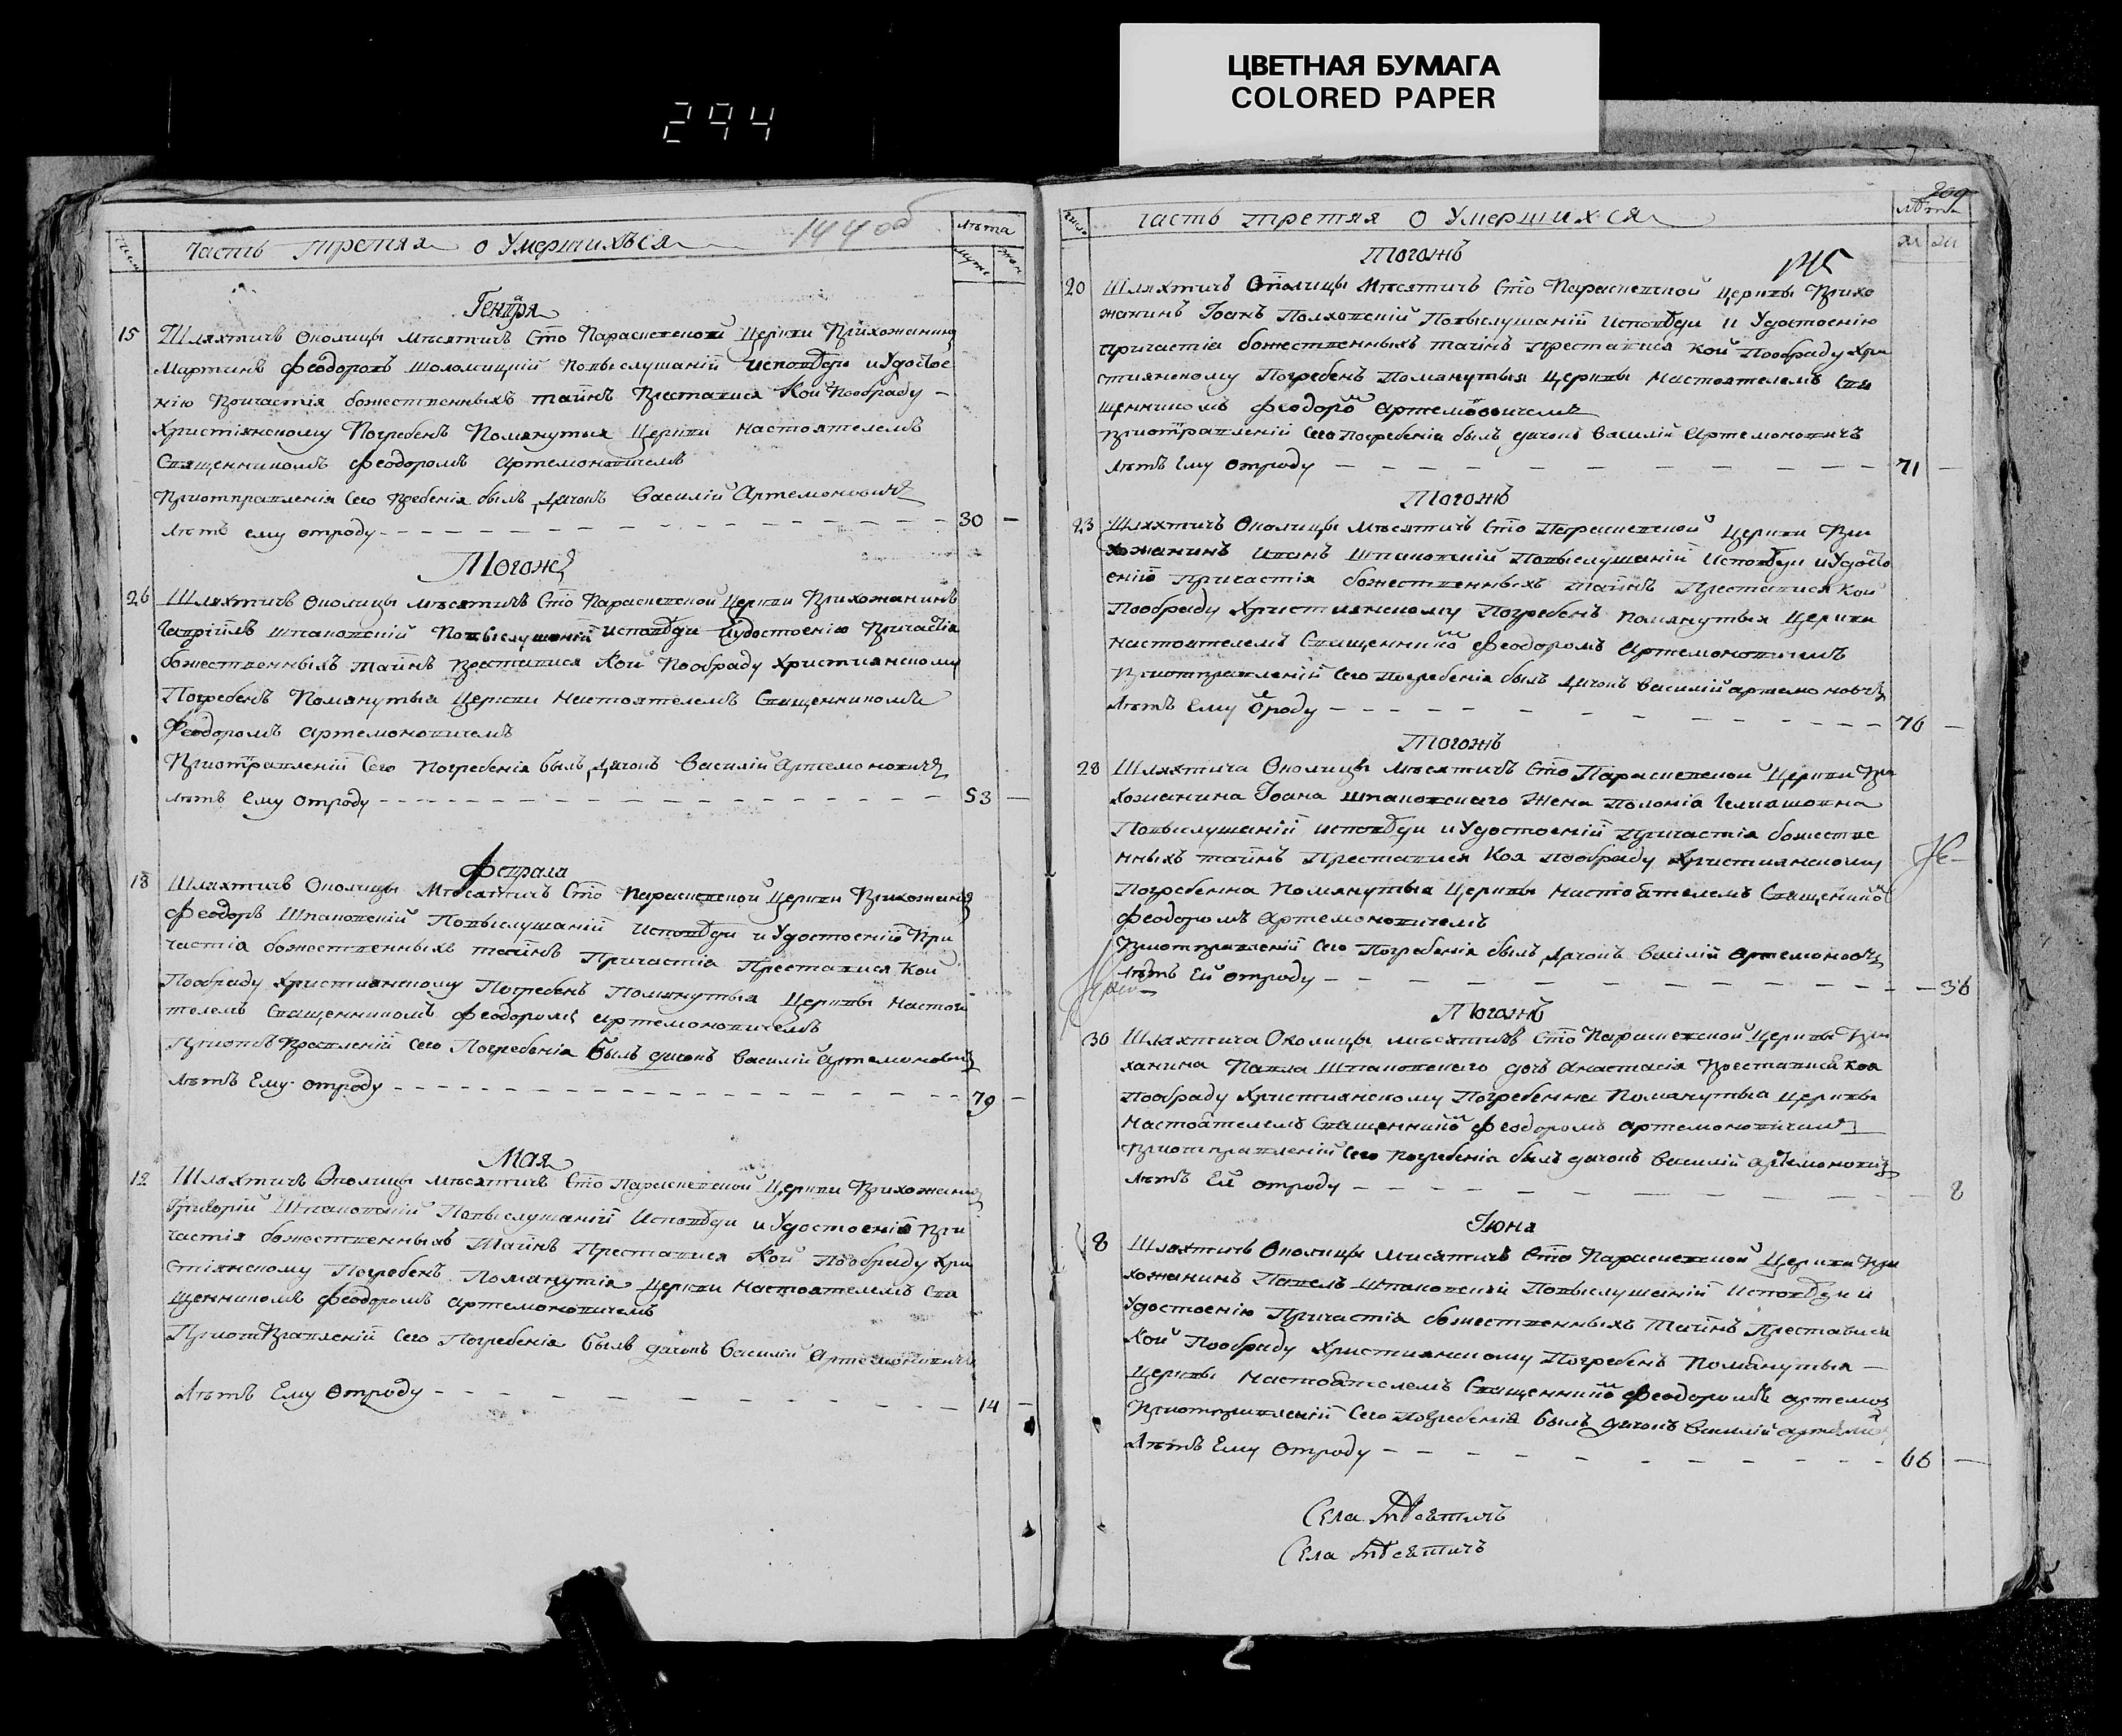 ЦВЕТНАЯ БУМАГА
COLORED PAPER
294
Часть третяя о умершихъся
144 об
лѣта
Генваря
15 Шляхтичъ Околицы Мѣсятичъ Сто Параскевской Церкви Прихожанинъ
Мартинъ Феодоровъ Шоломицкій Повыслушаній исповѣди и Удостое
нію Причастія божественныхъ тайнъ Преставися Кой Пообраду
Христіянскому Погребенъ Помянутыя Церкви Настоятелемъ
Священникомъ Феодоромъ Артемоновичемъ
Приотправленія Сего Гребенія былъ дячокъ Василій Артемоновичъ
Лѣтъ ему отроду 30 —
Тогожъ
26 Шляхтичъ Околицы Мѣсятичъ Сто Параскевской Церкви Прихожанинъ
Гавріилъ Шпаковскій Повыслушаній исповѣди Иудостоенію Причастія
божественныхъ тайнъ Преставися Кой Пообраду Християнскому
Погребенъ Помянутыя Церкви Настоятелемъ Священникомъ
Феодоромъ Артемоновичемъ
Приотправленій Сего Погребенія былъ Дячокъ Василій Артемоновичъ
лѣтъ Ему отроду 53 —
Феврала
18 Шляхтичъ Околицы Мѣсятичъ Сто Параскевской Церкви Прихожанинъ
Феодоръ Шпаковскій Повыслушаній Исповѣди и Удостоенію При
частіа божественныхъ тайнъ Причастіа Преставися Кой
Пообраду Християнскому Погребенъ Помянутыя Церквы Настоя
телемъ Священникомъ Феодоромъ Артемоновичемъ
Сего Погребеніа былъ дячокъ Василій Артемоновичъ
Лѣтъ Ему отроду 79 —
Мая
12 Шляхтичъ Околицы Мѣсятичъ Сто Параскевской Церкви Прихожанинъ
Григорій Шпаковскій Повыслушаній Исповѣди и Удостоенію При
частія божественныхъ Тайнъ Преставися Кой Пообраду Хри
стіянскому Погребенъ Помянутія Церкви Настоятелемъ Свя
щенникомъ Феодоромъ Артемоновичемъ
Приотправленій Сего Погребеніа былъ дячокъ Василій Артемоновичъ
Лѣтъ Ему Отроду 14 —
209
Часть третяя о умершихся
лѣта
Тогожъ
145
20 Шляхтичъ Околицы Мѣсятичъ Сто Параскевской Церквы Прихо
жанинъ Іоанъ Повыслушаній Исповѣди и Удостоенію
причастіа божественныхъ тайнъ преставися кой Пообраду Хри
стиянскому Погребенъ Помянутыя Церквы Настоятелемъ Свя
щенникомъ Феодоромъ Артемоновичемъ
Приотправленій Сего погребеніа былъ дячокъ Василій Артемоновичъ
Лѣтъ Ему отроду 71 —
Тогожъ
23 Шляхтичъ Околицы Мѣсятичъ Сто Параскевской Церкви При
хожанинъ Иванъ Шпаковскій Повыслушаній Исповѣди и Удосто
енію Причастія божественныхъ тайнъ Преставися Кой
Пообраду Християнскому Погребенъ Помянутыя Церкви
Настоятелемъ Священнико Феодоромъ Артемоновичемъ
Приотправленій Сего Погребенія былъ Дячокъ Василій Артемоновичъ
Лѣтъ Ему отроду 76 —
Тогожъ
28 Шляхтича Околицы Мѣсятичъ Сто Параскевской Церкви При
хожанина Іоана Шпаковскаго Жена Полоніа
Повыслушаній исповѣди и Удостоеній Причастіа божестве
нныхъ тайнъ Преставися Коя Пообраду Християнскому
Погребенна Помянутыя Церквы Настоятелемъ Священнико
Феодоромъ Артемоновичемъ
Приотправленій Сего Погребеніа былъ Дячокъ Василій Артемоновичъ
Лѣтъ Ей отроду — 36
Тогожъ
30 Шляхтича Околицы Мѣсятичъ Сто Параскевской Церквы При
жанина Павла Шпаковского дочъ Анастасія Преставися коя
Пообраду Християнскому Погребенна Помянутыа Церквы
Настоятелемъ Священнико Феодоромъ Артемоновичемъ
Приотправленій Сего Погребеніа былъ дячокъ Василій Артемоновичъ
Лѣтъ Ей отроду 8
Іюня
8 Шляхтичъ Околицы Мисятичъ Сто Параскевской Церкви При
хожанинъ Павелъ Шпаковскій Повыслушаній Исповѣди и
Удостоенію Причастіа божественныхъ Тайнъ Преставися
Кой Пообраду Християнскому Погребенъ Помянутыя
Церквы Настоятелемъ Священнико Феодоромъ Артемо
Приотправленій Сего Погребеніа былъ дячокъ Василій Артемо
Лѣтъ Ему Отроду 66 —
Села Мѣсятичъ
Села Мѣсятичъ